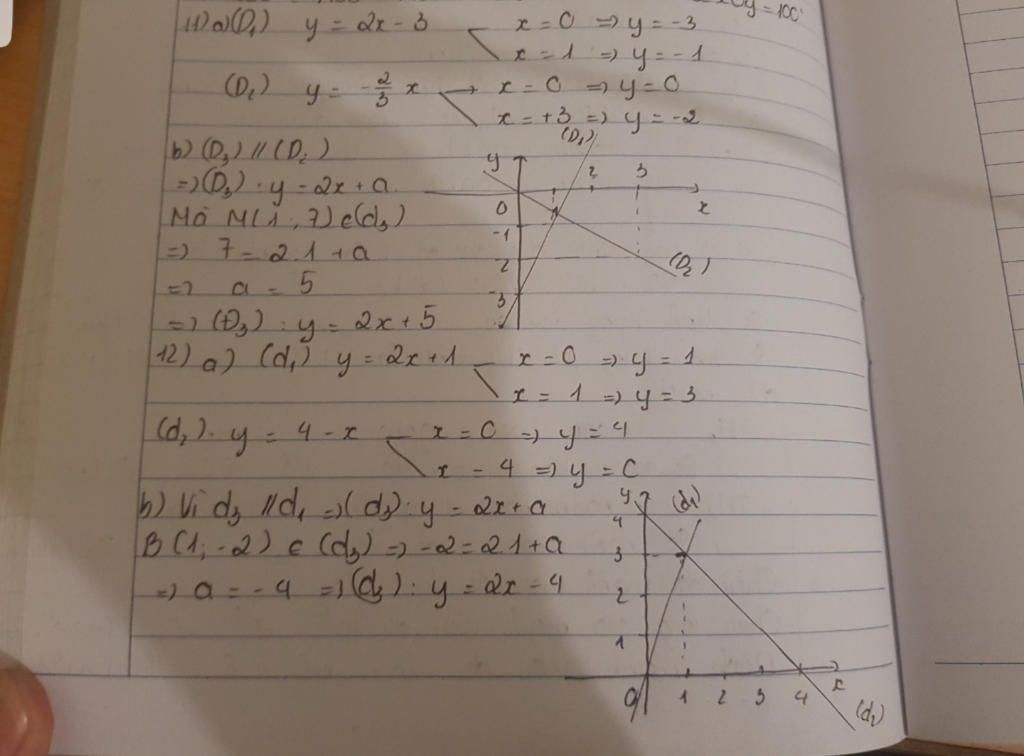 xOy = 100°
11) a) (D₁) y = 2x - 3 x = 0 => y = -3
x = 1 => y = -1
(D₂) y = -2/3 x → x = 0 => y = 0
x = +3 => y = -2
b) (D₃) // (D₂)
=> (D₃) : y = 2x + a
Mà M(1 ; 7) ∈ (d₃)
=> 7 = 2.1 + a
=> a = 5
=> (D₃) : y = 2x + 5
(D₁)
y
1 2 3
0 x
-1
2
-3
(D₂)
12) a) (d₁) y = 2x + 1 x = 0 => y = 1
x = 1 => y = 3
(d₂) . y = 4 - x x = 0 => y = 4
x - 4 => y = 0
b) Vì d₃ // d₁ => (d₃) : y = 2x + a
B (1; -2) ∈ (d₃) => -2 = 2.1 + a
=> a = -4 => (d₃) : y = 2x - 4
y (d₁)
4
3
2
1
0 1 2 3 4 x
(d₂)